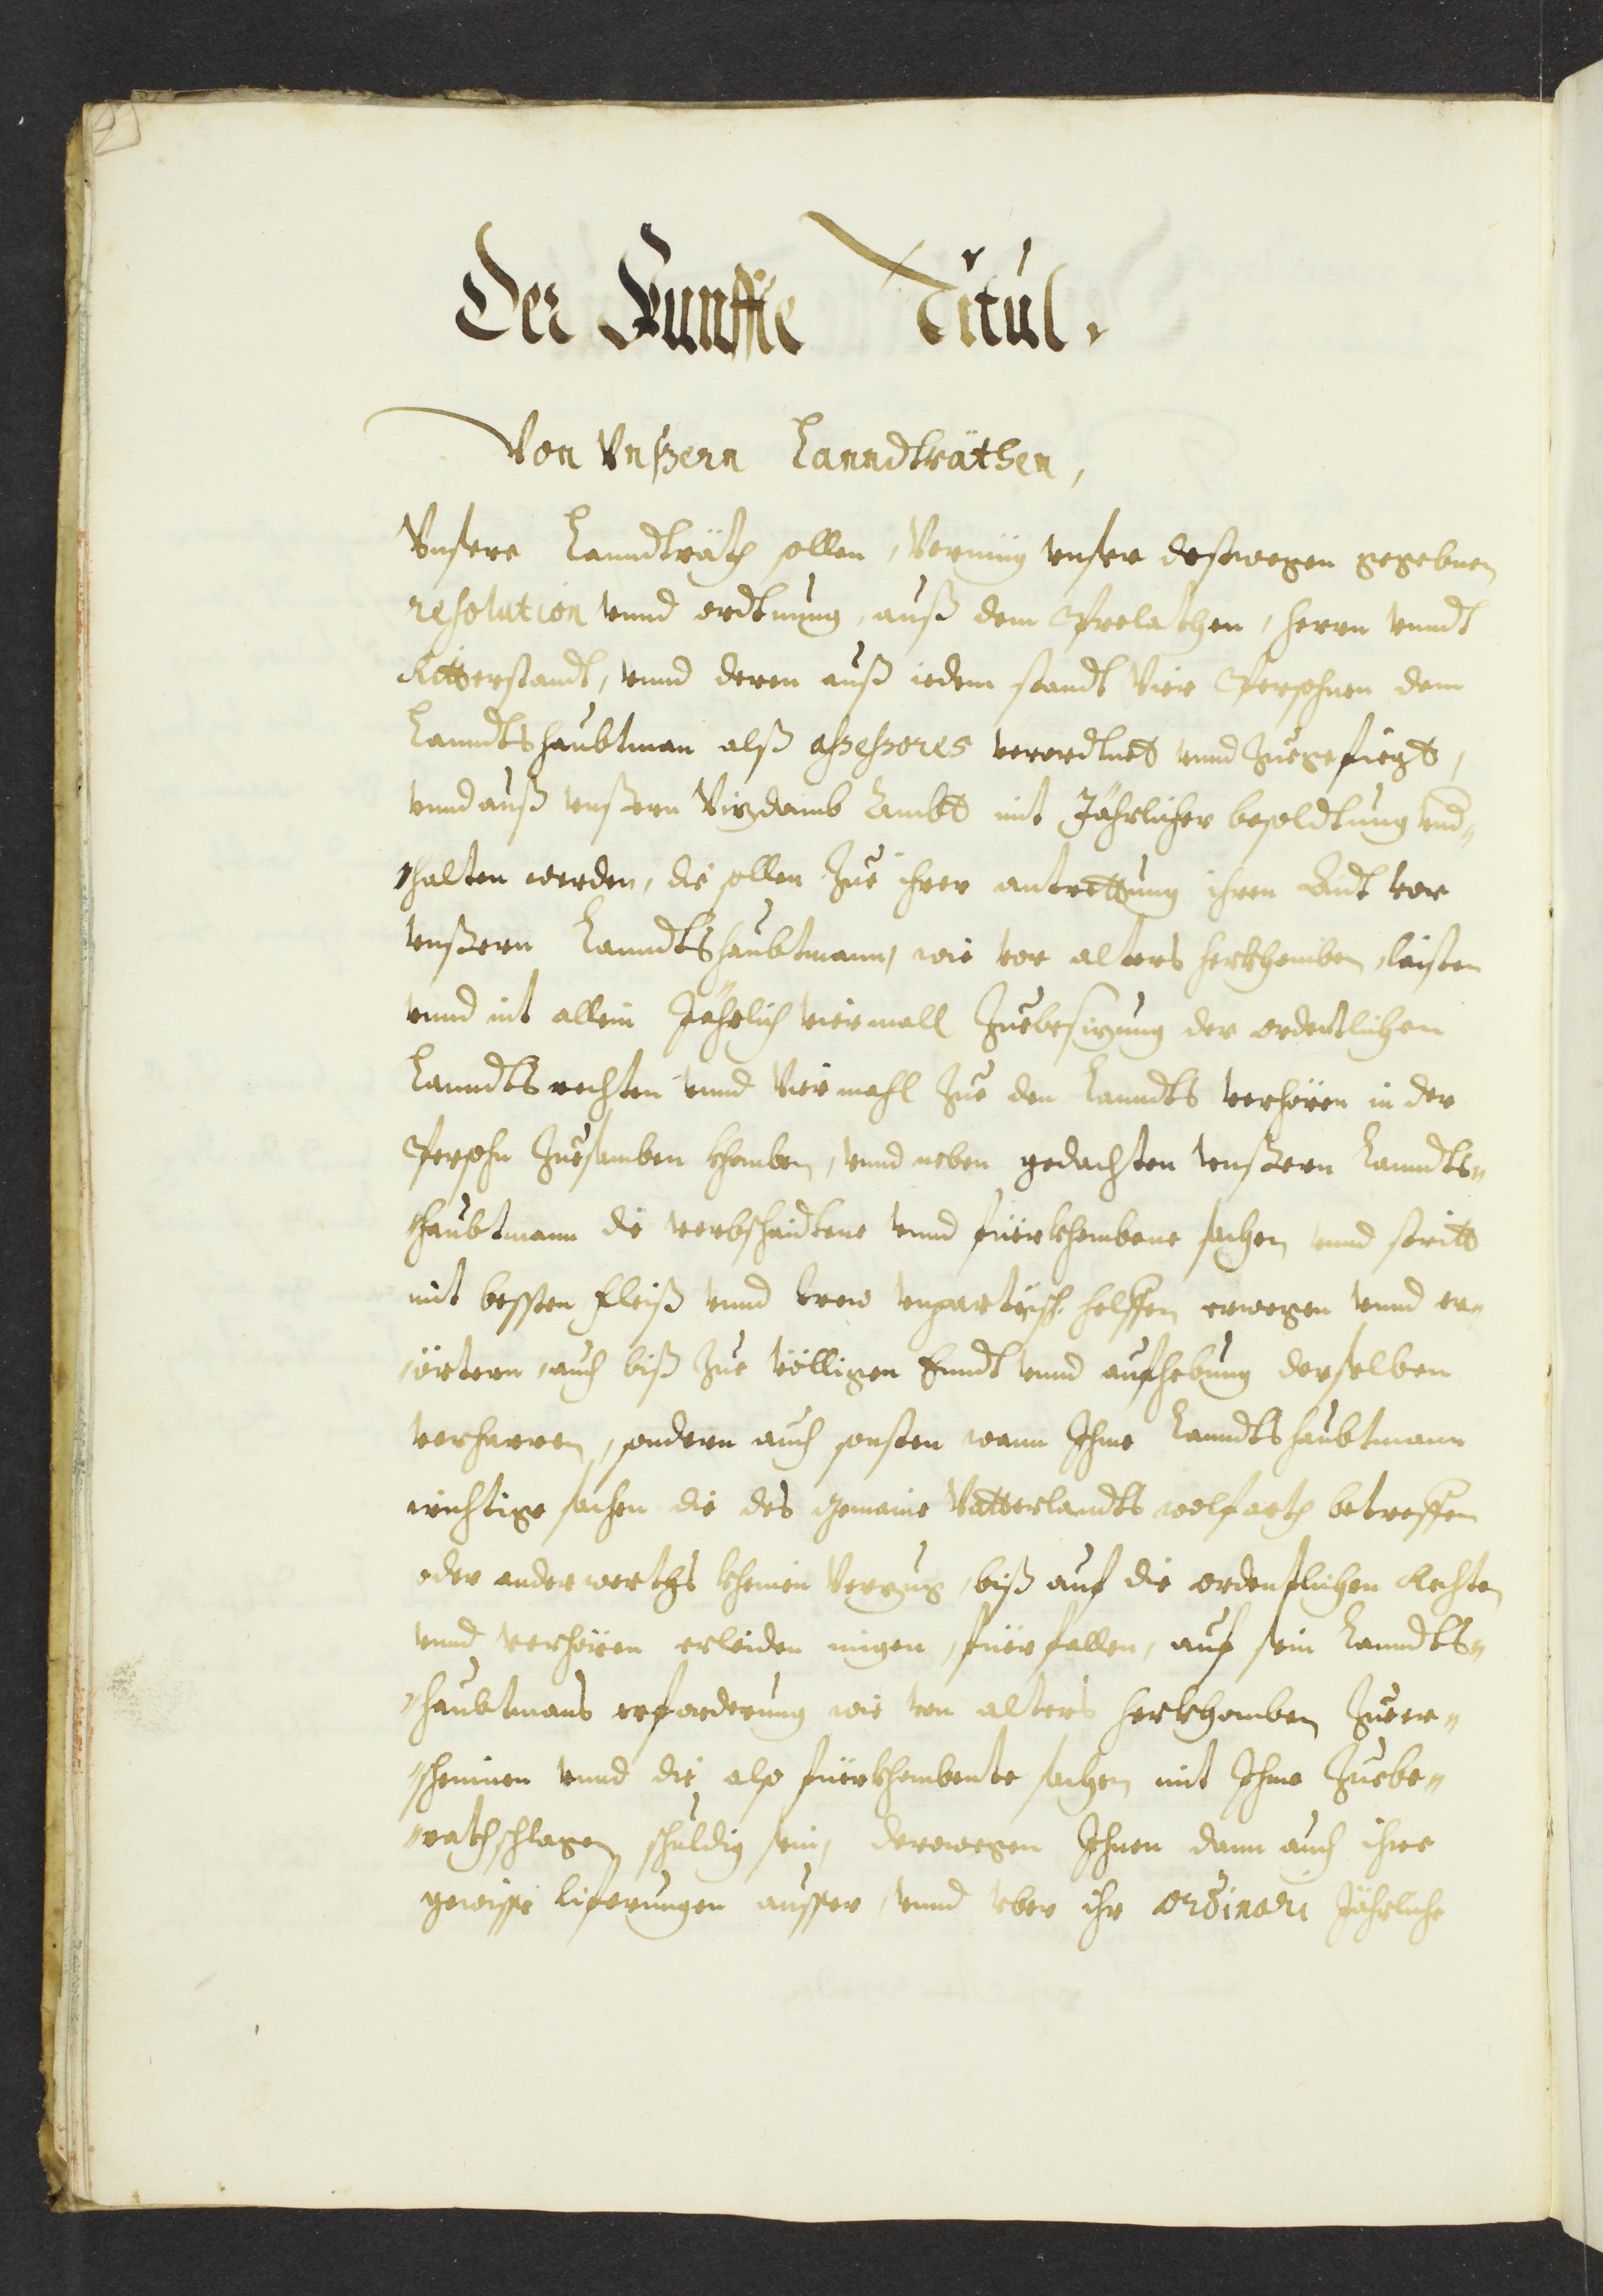 Der Funffte Titul.
Von Vnßern Lanndträthen,
Vnsere Lanndträth sollen, Vermüg vnser deßwegen gegebnen
resolution vnnd ordtnung, auß dem Prelathen, herrn vnndt
Ritterstandt, vnnd deren auß iedem standt Vier Persohnen dem
Lanndtshaubtman alß aßeßores verordtnet vnnd Zuegefiegt,
vnnd auß vnßern Vizdamb Ambt mit Jährlicher besoldtung vnd„
„halten werden, die sollen Zue ihrer antrettung ihren Aidt vor
vnßern Lanndtshaubtmann, wie vor alters herkhomben, laisten
vnnd nit allein Jährlich viermall Zuebesizung der ordentlichen
Lanndts rechten vnnd Vier mahl Zue den Lanndts verhören in der
Persohn Zuesamben khomben, vnnd neben gedachten vnßern Lanndts„
„haubtmann die verbschaidtene vnnd fürkhombene sachen vnnd stritt
mit bessten fleiß vnnd trew vnpartyisch helffen erwegen vnnd er„
„örtern, auch biß Zue völligen Enndt vnnd aufhebung derselben
verharren, sondern auch sonsten wann Ihme Lanndtshaubtmann
wichtige sachen die des gemaine Vatterlandts wolfarth betreffen
oder anderwerths kheinen Verzug, biß auf die ordentlichen Rechten
vnnd verhören erleiden migen, fürfallen, auf sein Lanndts„
„haubtmans erforderung wie von alters herkhomben Zueer„
„scheinen vnnd die also fürkhombente sachen mit Ihme Zuebe„
„rathschlagen schuldig sein, derwegen Ihnen dann auch ihre
gewisse liferungen ausser, vnnd vber ihr ordinari Jährliche